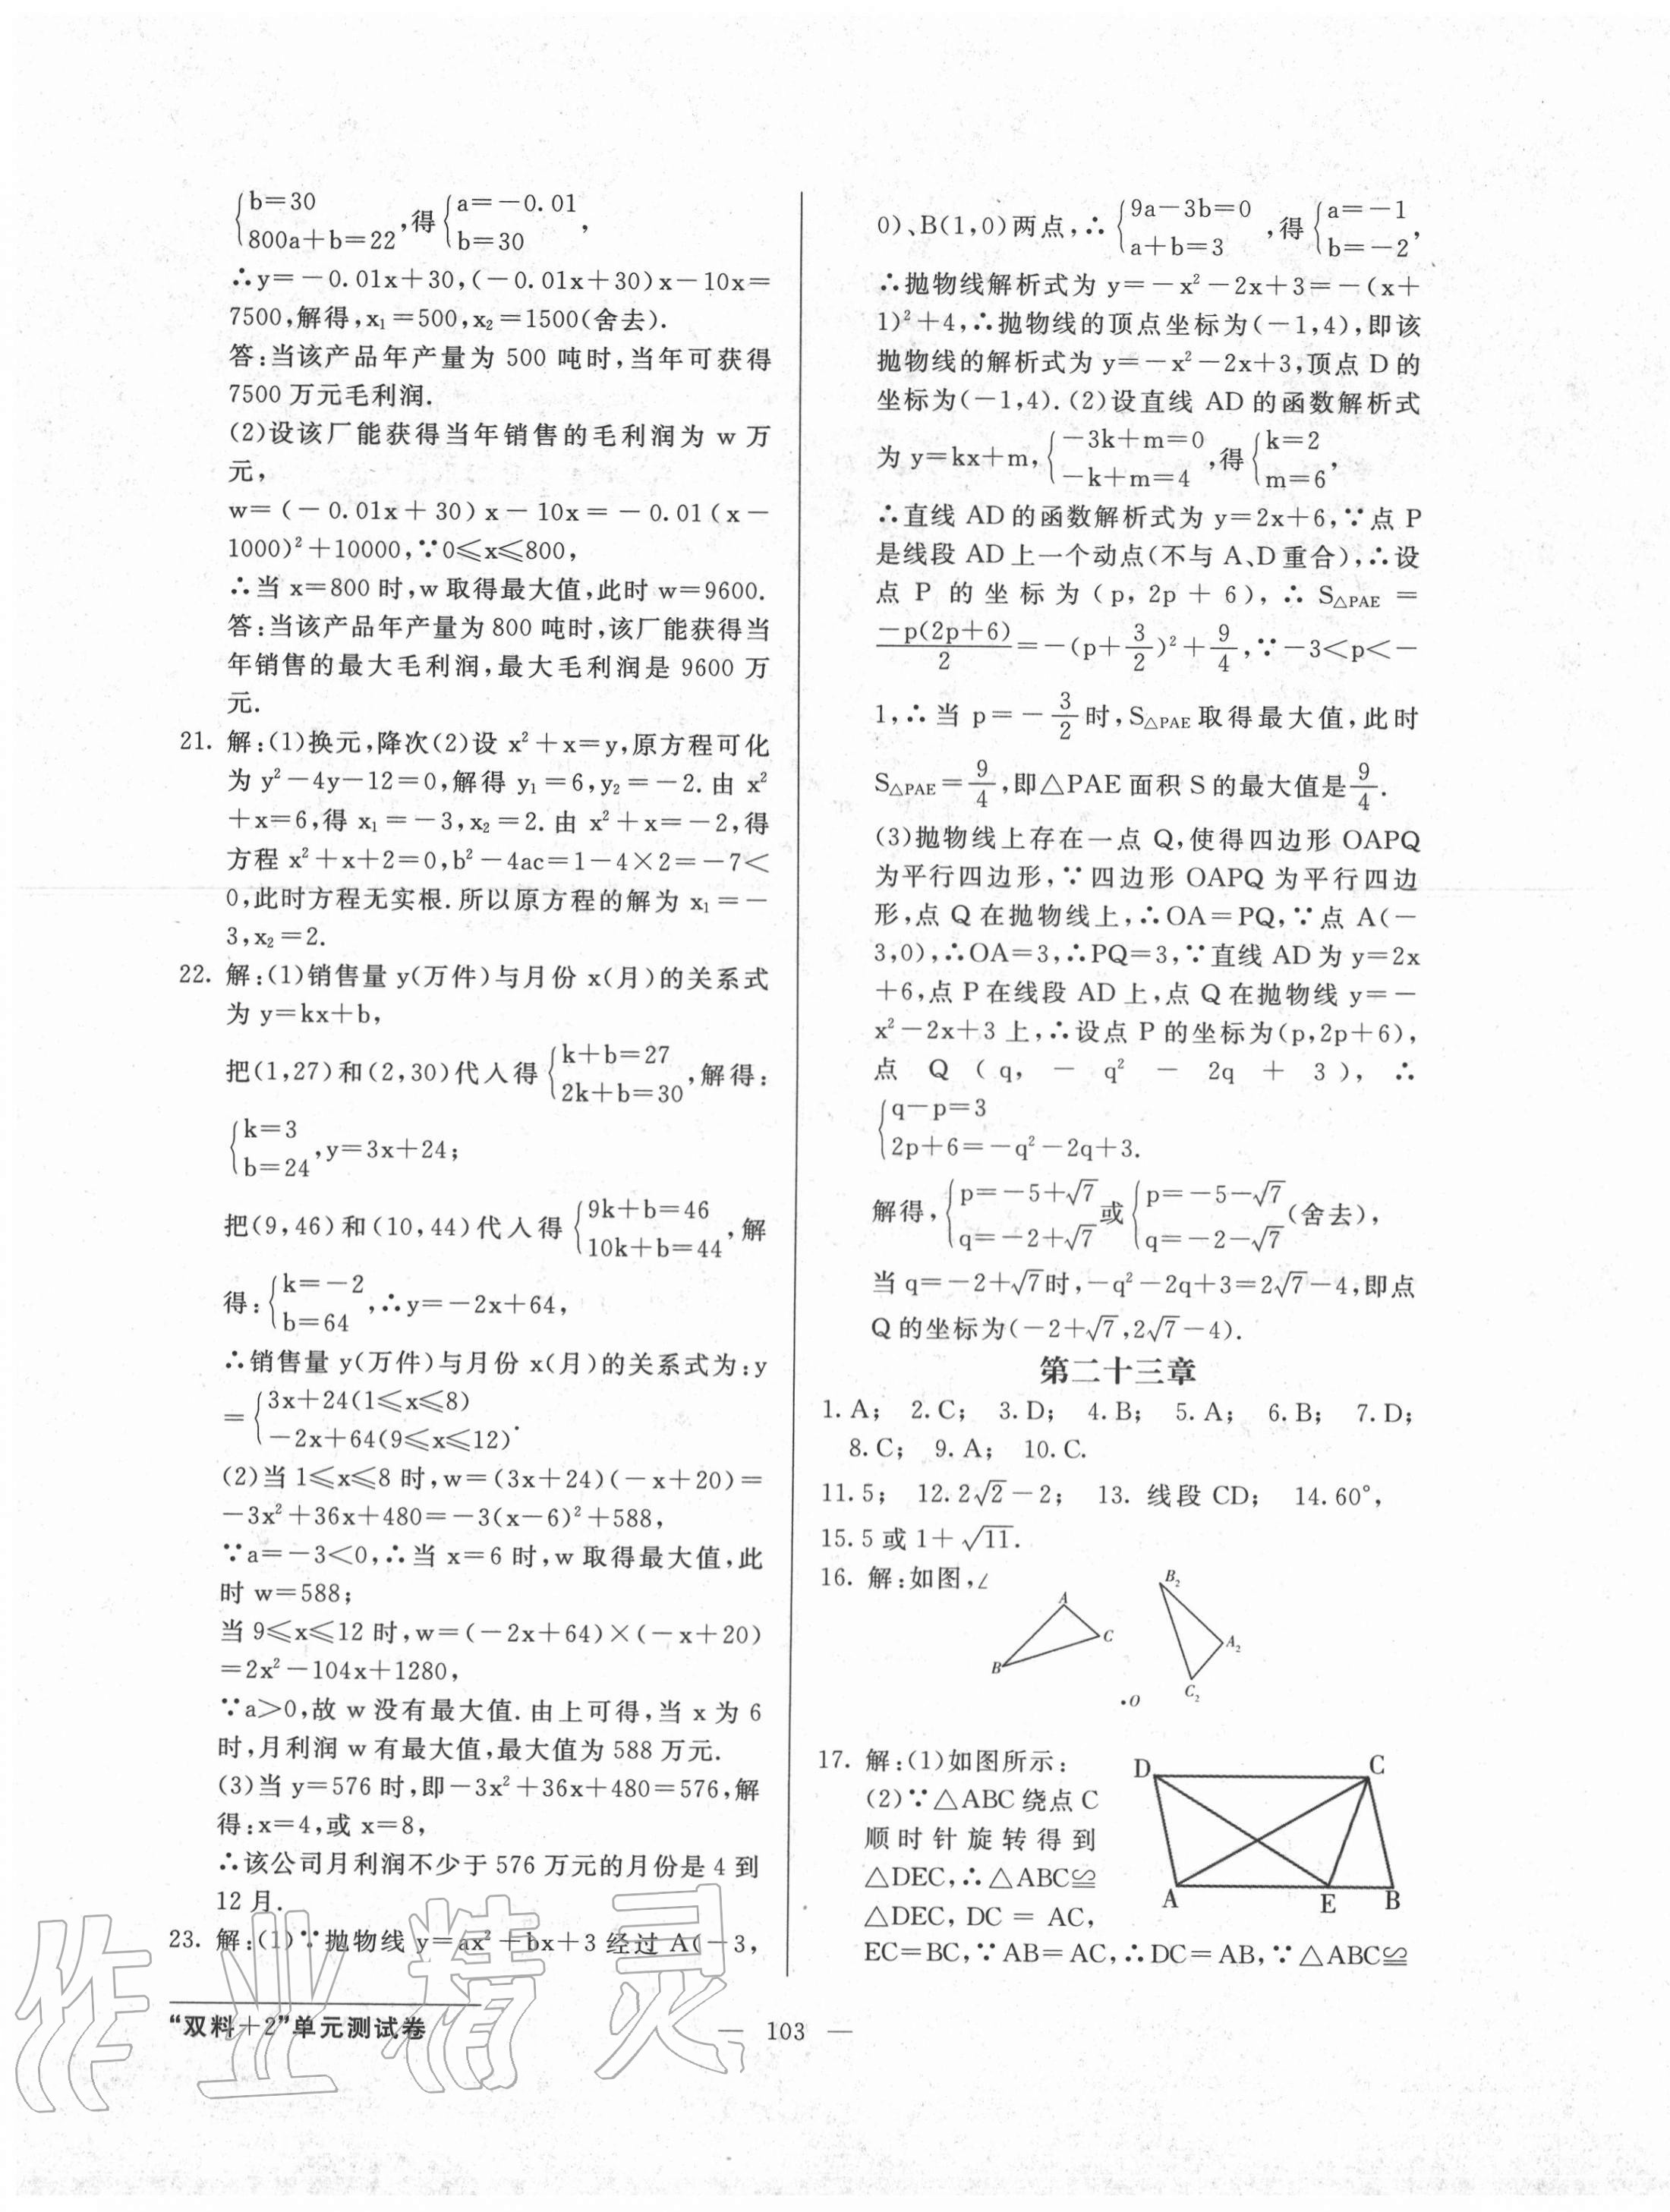 {b=30
800a+b=22,得{a=-0.01
b=30,
∴y=-0.01x+30,(-0.01x+30)x-10x=
7500,解得,x₁=500,x₂=1500(舍去).
答:当该产品年产量为 500 吨时,当年可获得
7500 万元毛利润.
(2)设该厂能获得当年销售的毛利润为 w 万
元,
w=(-0.01x+30)x-10x=-0.01(x-
1000)²+10000,∵0≤x≤800,
∴当 x=800 时,w 取得最大值,此时 w=9600.
答:当该产品年产量为 800 吨时,该厂能获得当
年销售的最大毛利润,最大毛利润是 9600 万
元.
21. 解:(1)换元,降次(2)设 x²+x=y,原方程可化
为 y²-4y-12=0,解得 y₁=6,y₂=-2. 由 x²
+x=6,得 x₁=-3,x₂=2. 由 x²+x=-2,得
方程 x²+x+2=0,b²-4ac=1-4×2=-7<
0,此时方程无实根. 所以原方程的解为 x₁=-
3,x₂=2.
22. 解:(1)销售量 y(万件)与月份 x(月)的关系式
为 y=kx+b,
把(1,27)和(2,30)代入得{k+b=27
2k+b=30,解得:
{k=3
b=24,y=3x+24;
把(9,46)和(10,44)代入得{9k+b=46
10k+b=44,解
得:{k=-2
b=64,∴y=-2x+64,
∴销售量 y(万件)与月份 x(月)的关系式为:y
={3x+24(1≤x≤8)
-2x+64(9≤x≤12).
(2)当 1≤x≤8 时,w=(3x+24)(-x+20)=
-3x²+36x+480=-3(x-6)²+588,
∵a=-3<0,∴当 x=6 时,w 取得最大值,此
时 w=588;
当 9≤x≤12 时,w=(-2x+64)×(-x+20)
=2x²-104x+1280,
∵a>0,故 w 没有最大值. 由上可得,当 x 为 6
时,月利润 w 有最大值,最大值为 588 万元.
(3)当 y=576 时,即-3x²+36x+480=576,解
得:x=4,或 x=8,
∴该公司月利润不少于 576 万元的月份是 4 到
12 月.
23. 解:(1)∵抛物线 y=ax²+bx+3 经过 A(-3,
0)、B(1,0)两点,∴{9a-3b=0
a+b=3,得{a=-1
b=-2,
∴抛物线解析式为 y=-x²-2x+3=-(x+
1)²+4,∴抛物线的顶点坐标为(-1,4),即该
抛物线的解析式为 y=-x²-2x+3,顶点 D 的
坐标为(-1,4). (2)设直线 AD 的函数解析式
为 y=kx+m,{-3k+m=0
-k+m=4,得{k=2
m=6,
∴直线 AD 的函数解析式为 y=2x+6,∵点 P
是线段 AD 上一个动点(不与 A、D 重合),∴设
点 P 的坐标为(p, 2p+6),∴S△PAE=
-p(2p+6)/2=-(p+3/2)²+9/4,∵-3<p<-
1,∴当 p=-3/2时,S△PAE取得最大值,此时
S△PAE=9/4,即△PAE 面积 S 的最大值是9/4.
(3)抛物线上存在一点 Q,使得四边形 OAPQ
为平行四边形,∵四边形 OAPQ 为平行四边
形,点 Q 在抛物线上,∴OA=PQ,∵点 A(-
3,0),∴OA=3,∴PQ=3,∵直线 AD 为 y=2x
+6,点 P 在线段 AD 上,点 Q 在抛物线 y=-
x²-2x+3 上,∴设点 P 的坐标为(p,2p+6),
点 Q(q, -q²-2q+3),∴
{q-p=3
2p+6=-q²-2q+3.
解得,{p=-5+√7
q=-2+√7或{p=-5-√7
q=-2-√7(舍去),
当 q=-2+√7时,-q²-2q+3=2√7-4,即点
Q 的坐标为(-2+√7,2√7-4).
第二十三章
1. A; 2. C; 3. D; 4. B; 5. A; 6. B; 7. D;
8. C; 9. A; 10. C.
11. 5; 12. 2√2-2; 13. 线段 CD; 14. 60°,
15. 5 或 1+√11.
16. 解:如图,∠
A
B
C
B₂
A₂
C₂
O
17. 解:(1)如图所示:
(2)∵△ABC 绕点 C
顺时针旋转得到
△DEC,∴△ABC≌
△DEC, DC=AC,
D
C
A
E
B
EC=BC,∵AB=AC,∴DC=AB,∵△ABC≌
“双料+2”单元测试卷
— 103 —
作业精灵